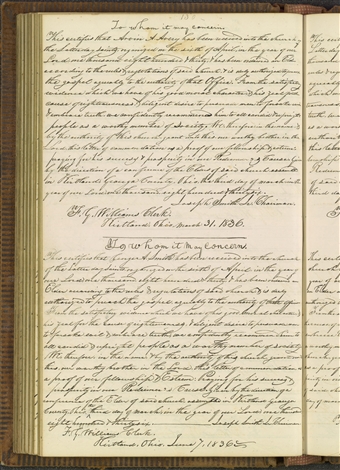 To Whom it may concern
This certifies that Avery has been received into the church
of the Latterday Saints organized on the sixth of April in the year of our
Lord one thousand eight hundred & thirty & has been ordained an Elder
according to the rules & regulations of said church & is duly authorized to preach
the gospel agreeably to the authority of that Office. From the satisfactory
evidence which we have of his good moral character & his zeal for the
cause of righteousness & diligent desire to persuade men to forsake evil
& embrace truth we confidently recommend him to all candid & upright
people as a worthy member of Society. We therefore in the name &
by the authority of this church grant unto this our worthy brother in the
Lord this letter of commendation as a proof of our fellowship & esteem
praying for his success & prosperity in our Redeemer's Cause Given
by the direction of a conference of the Elders of said church assembled
in Kirtland Geauga County Ohio the third day of March in the
year of our Lord one thousand eight hundred & thirty six.
Joseph Smith Jr Chairman
F. G. Williams Clerk.
Kirtland, Ohio, March 31, 1836.
To whom it May concern
This certifies that George A Smith has been received into the church
of the Latter day Saints organized on the sixth of April in the year of
our Lord one thousand eight hundred & thirty & has been ordained an
Elder according to the rules & regulations of said church & is duly
authorized to preach the gospel agreeably to the authority of that office
From the satisfactory evidence which we have of his good moral character &
his zeal for the cause of righteousness & diligent desire to persuade men
to forsake evil & embrace truth we confidently recommend him to
all candid & upright people as a worthy member of society
We therefore in the name & by the authority of this church grant unto
this our worthy brother in the Lord this letter of commendation as
a proof of our fellowship & Esteem praying for his success &
prosperity in our Redeemer's Cause Given by the direction of a
conference of the Elders of said church assembled in Kirtland Geauga
County Ohio third day of March in the year of our Lord one thousand
eight hundred & thirty six.
Joseph Smith Jr Chairman
F. G. Williams Clerk
Kirtland, Ohio, June 7, 1836